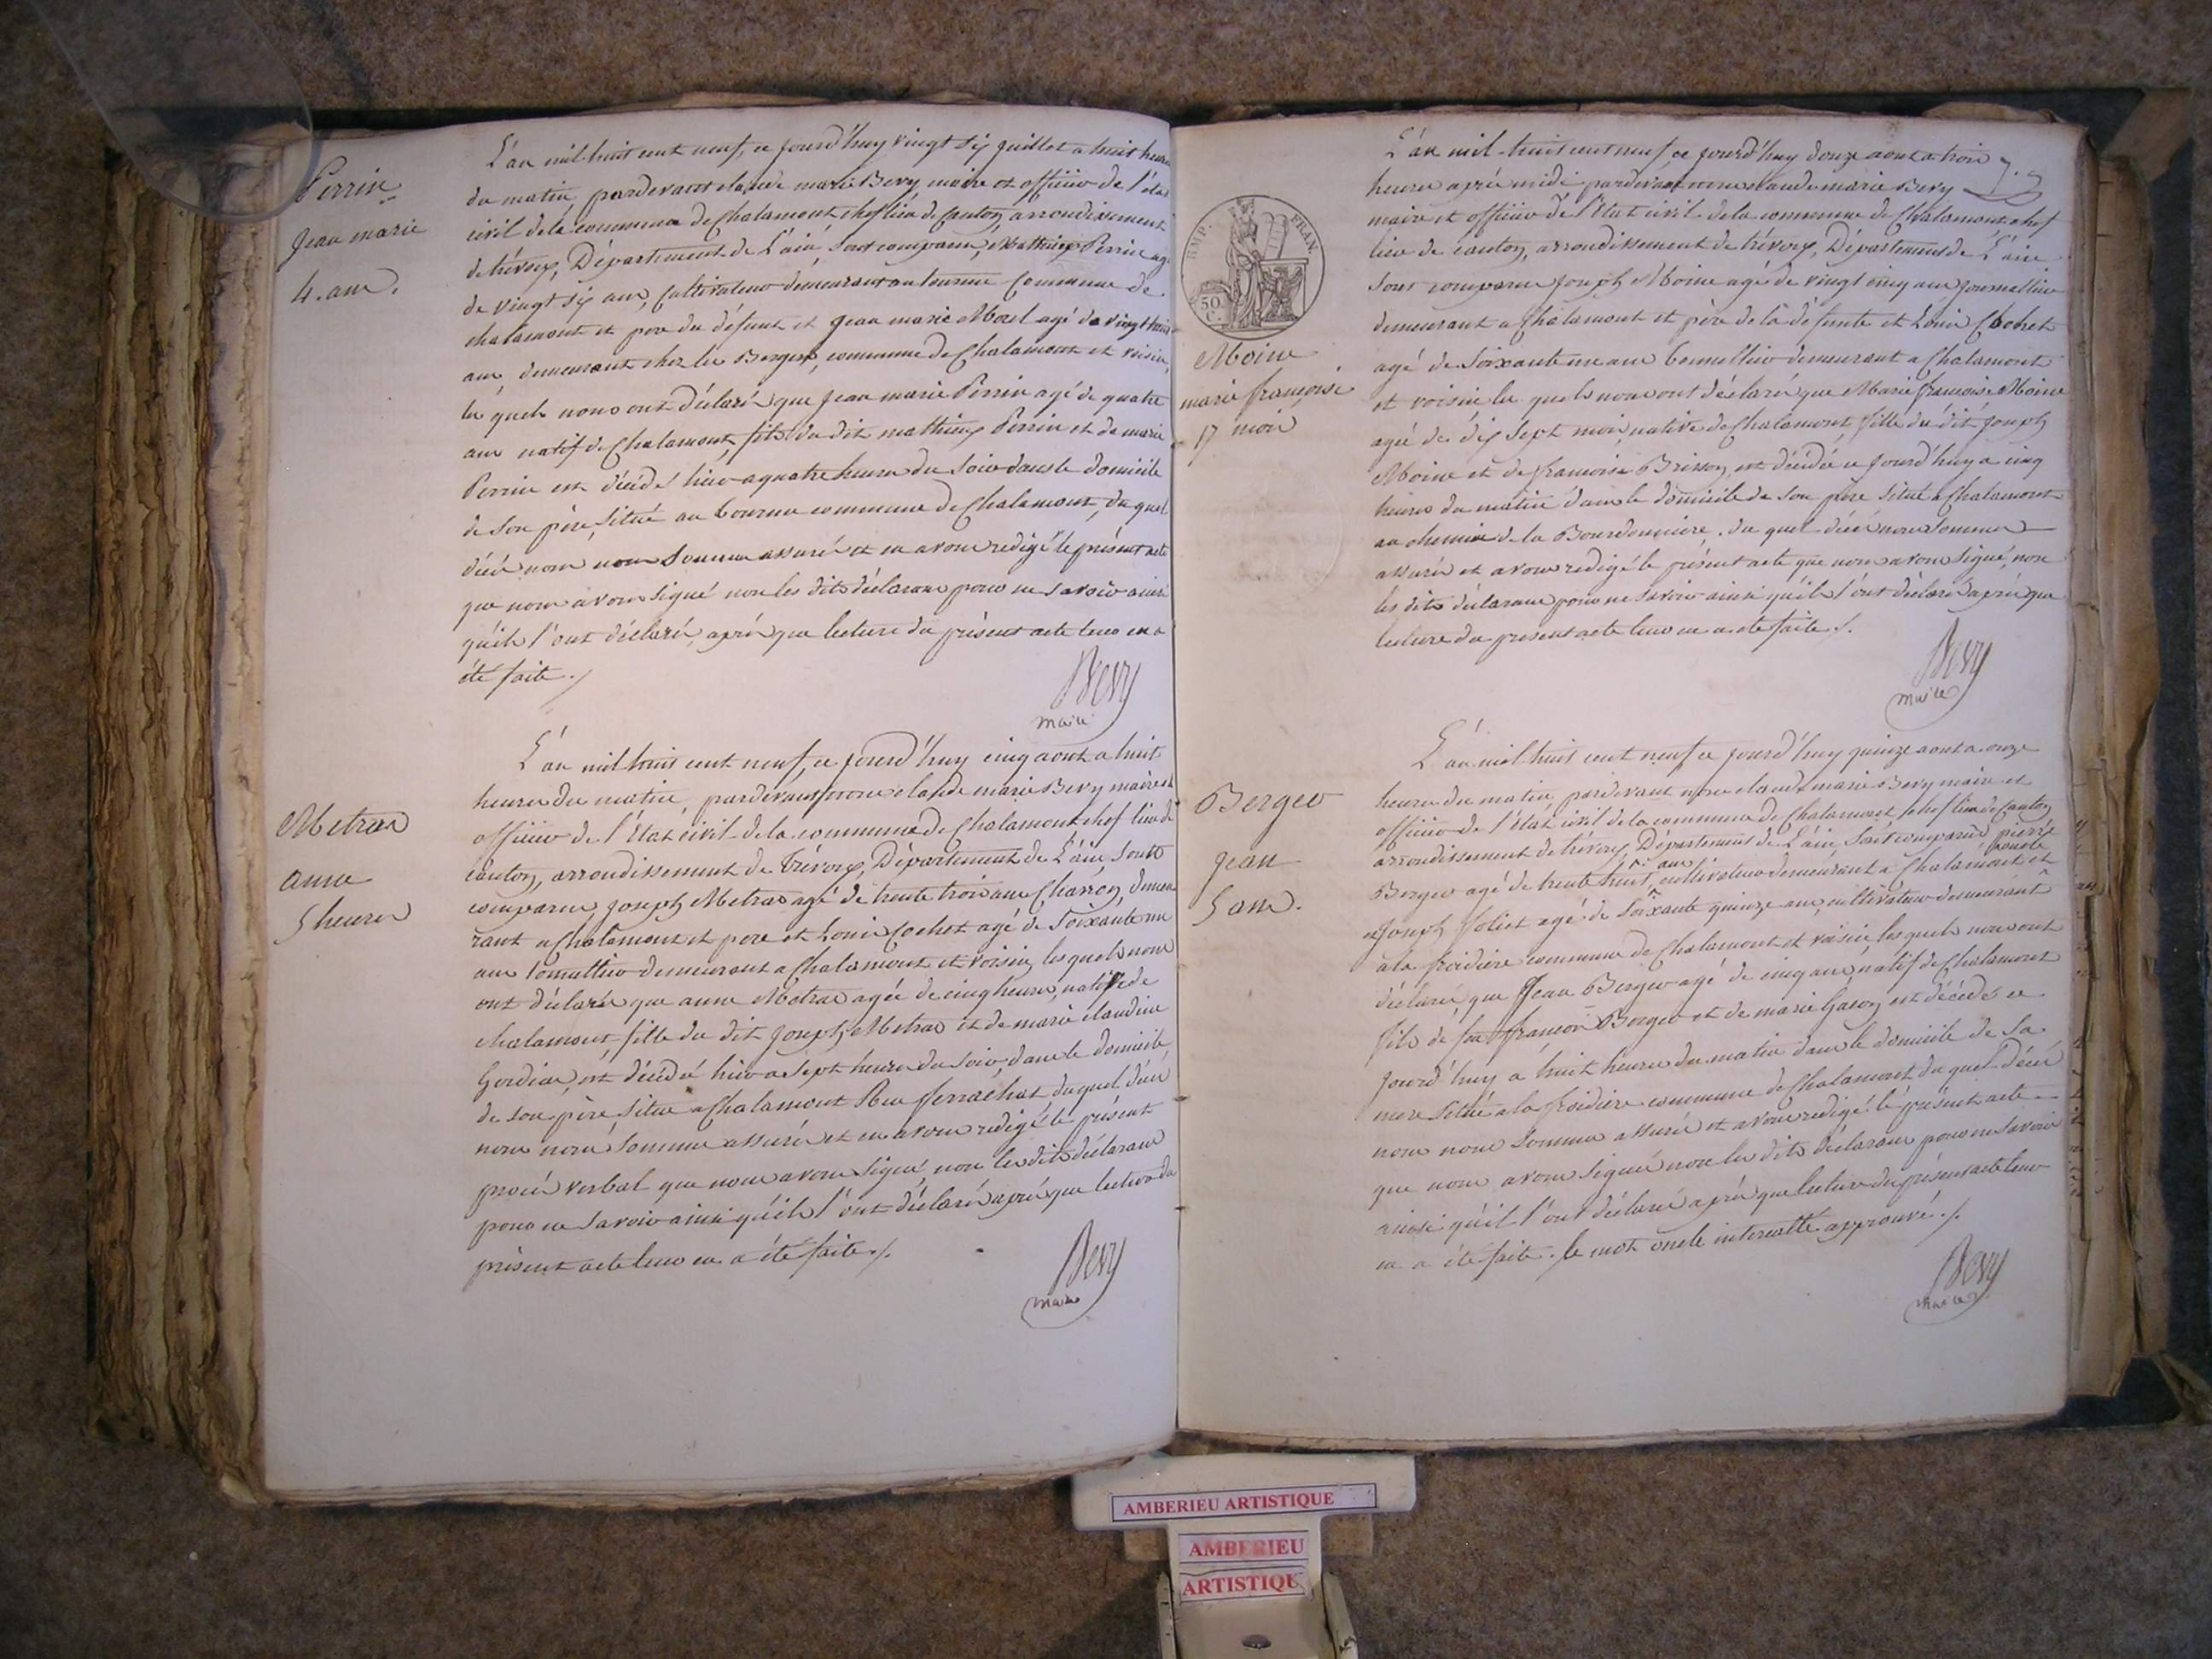 Perrin
Jean marie
4. ans.
L'an mil huit cent neuf, ce jourd'huy vingt six juillet a huit heures
du matin, pardevant claude marie Bevy maire et officier de l'état
civil de la commune de Chalamont, chef lieu de Canton, arrondissement
de trévoux, Département de L'ain, sont comparus, Mathieux Perrin agé
de vingt six ans, Cultivateur demeurant au tournu Commune de
chalamont et pere du défunt et Jean marie Morel agé de vingt trois
ans, demeurant chez les Berger, commune de Chalamont et voisin,
les quels nous ont déclaré que Jean marie Perrin agé de quatre
ans natif de Chalamont, fils du dit mathieux Perrin et de marie
Perrin est décédé hier a quatre heures du soir dans le domicile
de son père, situé au tournu commune de Chalamont, du quel
décès nous nous sommes assuré et en avons redigé le présent acte
que nous avons signé non les dits déclarans pour ne savoir ainsi
qu'ils l'ont déclaré, après que lecture du présent acte leur en a
été faite ./
Bevy
maire
Metras
anne
5 heures
L'an mil huit cent neuf, ce jourd'huy cinq aout a huit
heures du matin, pardevant nous claude marie Bevy maire et
officier de l'état civil de la commune de Chalamont chef lieu de
Canton, arrondissement de Trévoux, Département de L'ain, sont
comparus, Joseph Metras agé de trente trois ans Charron, demeu
rant a Chalamont et pere et Louis Cochet agé de Soixante un
ans tonnellier demeurant a Chalamont et voisin, les quels nous
ont déclaré que anne Metras agée de cinq heures, native de
chalamont, fille du dit Joseph Metras et de marie claudine
est décédée hier a sept heures du soir, dans le domicile
de son père, situé a Chalamont Rue ferrachat, du quel décès
nous nous sommes assuré et en avons redigé le présent
procès verbal que nous avons signé, non les dits déclarans
pour ne savoir ainsi qu'ils l'ont déclaré après que lecture du
présent acte leur en a été faite ./.
Bevy
maire
IMP. FRAN.
50 C.
Moine
marie françoise
17 mois
L'an mil-huit cent neuf ce jourd'huy douze aout a trois
heures après midi pardevant nous claude marie Bevy
maire et officier de l'état civil de la commune de Chalamont chef
lieu de canton, arrondissement de trévoux, Département de L'ain
sont comparus Joseph Moine agé de vingt cinq ans journallier
demeurant a Chalamont et père de la défunte et Louis Cochet
agé de Soixante un ans tonnellier demeurant a Chalamont
et voisin les quels nous ont déclaré que Marie françoise Moine
agée de dix sept mois, native de Chalamont, fille du dit Joseph
Moine et de françoise Brisson, est décédée ce jourd'huy a cinq
heures du matin dans le domicile de son père situé a Chalamont
au chemin de la Bourdonnière. du quel décès nous sommes
assuré et avons redigé le présent acte que nous avons signé, non
les dits déclarans pour ne savoir ainsi qu'ils l'ont déclaré après que
lecture du present acte leur en a été faite ./.
Bevy
maire
Berger
jean
5 ans.
L'an mil huit cent neuf ce jourd'huy quinze aout a onze
heures du matin, pardevant nous claude marie Bevy maire et
officier de l'état civil de la commune de Chalamont, chef lieu de Canton
arrondissement de trévoux, Département de L'ain, sont comparus, pierre
Berger agé de trente huit ans, cultivateur demeurant a Chalamont et oncle
et Joseph Joliet agé de Soixante quinze ans, cultivateur demeurant
a la froidiere commune de Chalamont et voisin, les quels nous ont
déclaré que Jean Berger agé de cinq ans, natif de Chalamont
fils de feu françois Berger et de marie est décédé ce
jourd'huy a huit heures du matin dans le domicile de sa
mere situé a la froidiere commune de Chalamont du quel décès
nous nous sommes assuré et avons redigé le présent acte
que nous avons signé non les dits déclarans pour ne savoir
ainsi qu'il l'ont déclaré après que lecture du présent acte leur
en a été faite. le mot oncle intercallé approuvé ./.
Bevy
maire
AMBERIEU ARTISTIQUE
AMBERIEU
ARTISTIQUE